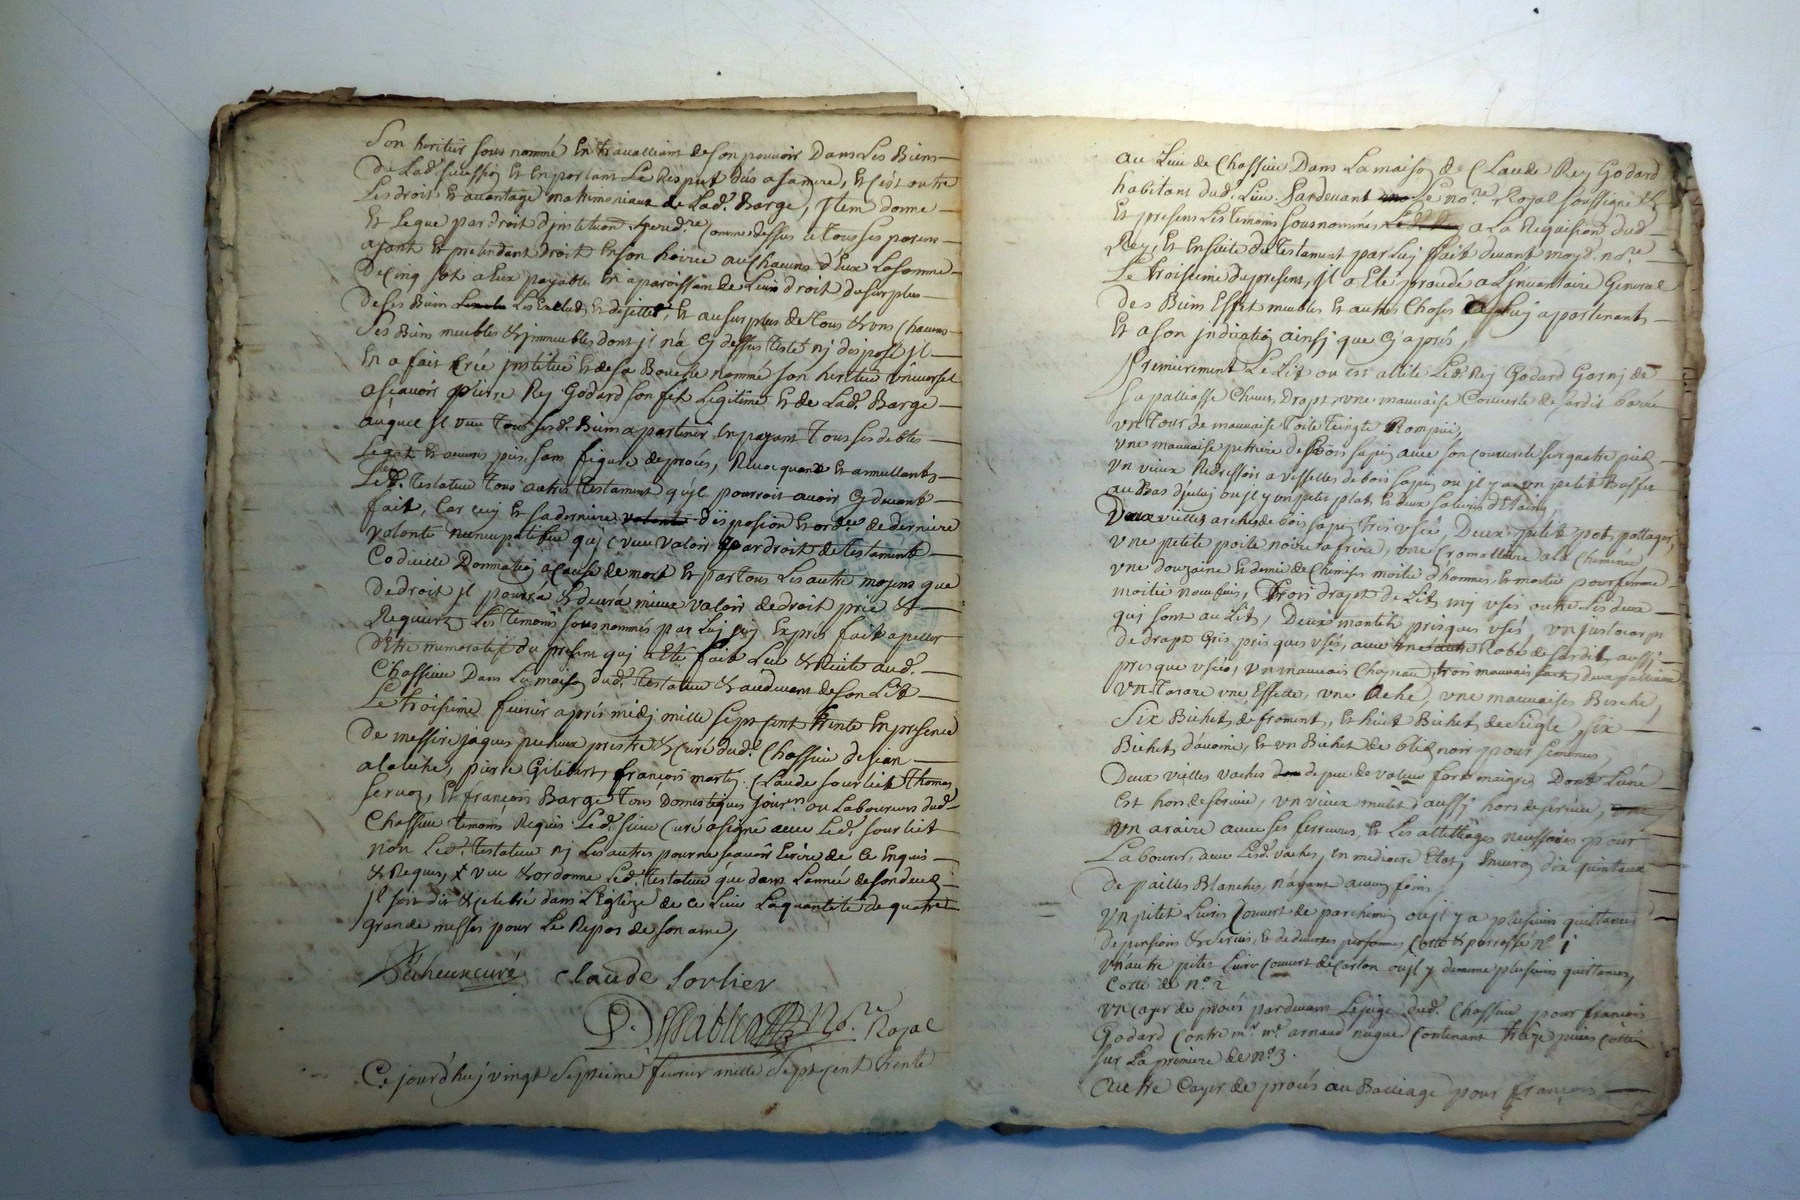 Son heritier sous nommé Et travalliant de son pouvoir Dans Les Biens
de Lad. sucession Et En portant Le Respect dus a sa mere, Et c'est outre
Les droits Et avantage matrimoniaux de Lad. Barge, Item donne
Et Legue par droit d'institution hered.re Comme dessus a tous ses parens
ayant Et pretendant droit En son hoirie au Chacuns d'Eux La somme
De Cinq sols a Eux payables En aparoissant de Leurs droit du surplus
de ses Biens Les Exclud, Et dejette, Et au surplus de tous & uns Chacuns
Ses Biens meubles & immeubles dont il n'a Cy dessus testé ny disposé Il
En a fait Crée institué Et de sa Bouche nommé son heritier universel
a sçavoir pierre Rey Godard son fils Legitime Et de Lad. Barge
auquel il veut tous sesd. Biens apartenir, En payant tous ses debtes
Legats Et œuvres pies, sans figure de procés, Revocquant Et annullants
Led. testateur tous autres testament qu'il pourroit avoir Cy devant
fait, Car cecy Et sa derniere volonté disposion Et ordce de derniere
volonté nuncupative quy veut valoir par droit de testament
Codicille Donnation a Cause de mort Et par tous Les autre moyens que
de droit il pourra & devra mieux valoir de droit prie &
Requiert Les temoins sous nommés par Luy Exprés fait apeller
d'Etre memoratif du present quy a Eté fait Leu & Recité aud.
Chassieu Dans La maison dud. testateur & au devant de son Lit
Le troisieme fevrier aprés midy mille sept cent trente En presence
de messire jaques pecheux prestre & Curé dud. Chassieu de jean
alouche, pierre Gilibert, françois martin, Claude sourliet Thomas
servoz, Et françois Barge tous Domestiques journ. ou Laboureurs dud.
Chassieu temoins Requis Led. sieur Curé a signé avec Led. sourliet
non Led. testateur ny Les autres pour ne sçavoir Ecrire de Ce Enquis
& Requis, veut & ordonne Led. testateur que dans L'année de son deceds
Il soit dit & celebré dans L'Eglize de ce Lieu La quantité de quatre
grande messes pour Le Repos de son ame,
Pecheux curé Claude Sorlier
No.re Royal
Ce jourd'huy vingt septieme fevrier mille sept cent trente
au Lieu de Chassieu Dans La maison de Claude Rey Godard
habitant dud. Lieu. Pardevant Le no.re Royal soussigné
Et presens Les temoins sous nommés a La Requisition dud.
Rey, Et Ensuite du testament par Luy fait devant moyd. no.re
Le troisieme du present, il a Eté procedé a L'inventaire General
des Biens Effets meubles Et autres Choses a Luy apartenants
Et a son indication ainsy que Cy aprés,
Premierement Le Lit ou Est allité Led. Rey Godard Garny de
sa palliasse Chevet, Drapt & une mauvaise Couverte de sardit barré
un Tour de mauvaise Toile Teingte Rompüe,
une mauvaise petriere de Bois sapin avec son couvercle ses quatre pieds
un vieux Redressoir a vesselles de bois sapin ou il y a un petit Buffet
au Bas d'iceluy ou il y un petit plat Et deux d'Etain,
Deux vieilles arches de bois sapin trés usée, Deux petit pot pottager,
une petite poile noire a frire, une Cromalliere a la Cheminée
une douzaine Et demie de Chemises moitié d'hommes, Et moitié pour femme
moitié, Trois drapt de Lit my usés outre Les deux
quy sont au Lit, Deux manteix presques usés, un justocorps
de drapt Gris presques usés, avec Robe de sardit, aussy
presque usée, un mauvais Chapeau, trois mauvais sacts
un Tarare une Effette, une ache, une mauvaises Besche,
Six Bichets de froment, Et huit Bichet de seigle, six
Bichets d'avoine, Et un Bichet de bled noir pour semences,
Deux vielles vaches de peu de valeur fort maigre Dont L'une
Est hors de service, un vieux mulet d'aussy hors de service,
un araire avec ses ferrures, Et Les attellages necessaires pour
Labourer, avec Lesd. vaches, En mediocre Etat, Environ dix quintaux
de pailles Blanches, n'ayant aucun foins,
un petit Livre Couvert de parchemin ou il y a plusieurs quittances
de pensions & servis, Et de diverses personnes Cotté & parraffé n.° 1
un autre petit Livre Couvert de carton ou il y dememe plusieurs quittances,
Cotté de n.° 2
un Cayer de procés pardevant Le juge dud. Chassieu pour francois
Godard Contre m.r arnaud nugue Contenant treize pieces Cotté
sur La premiere de n.° 3.
autre Cayer de procés au Balliage pour francois